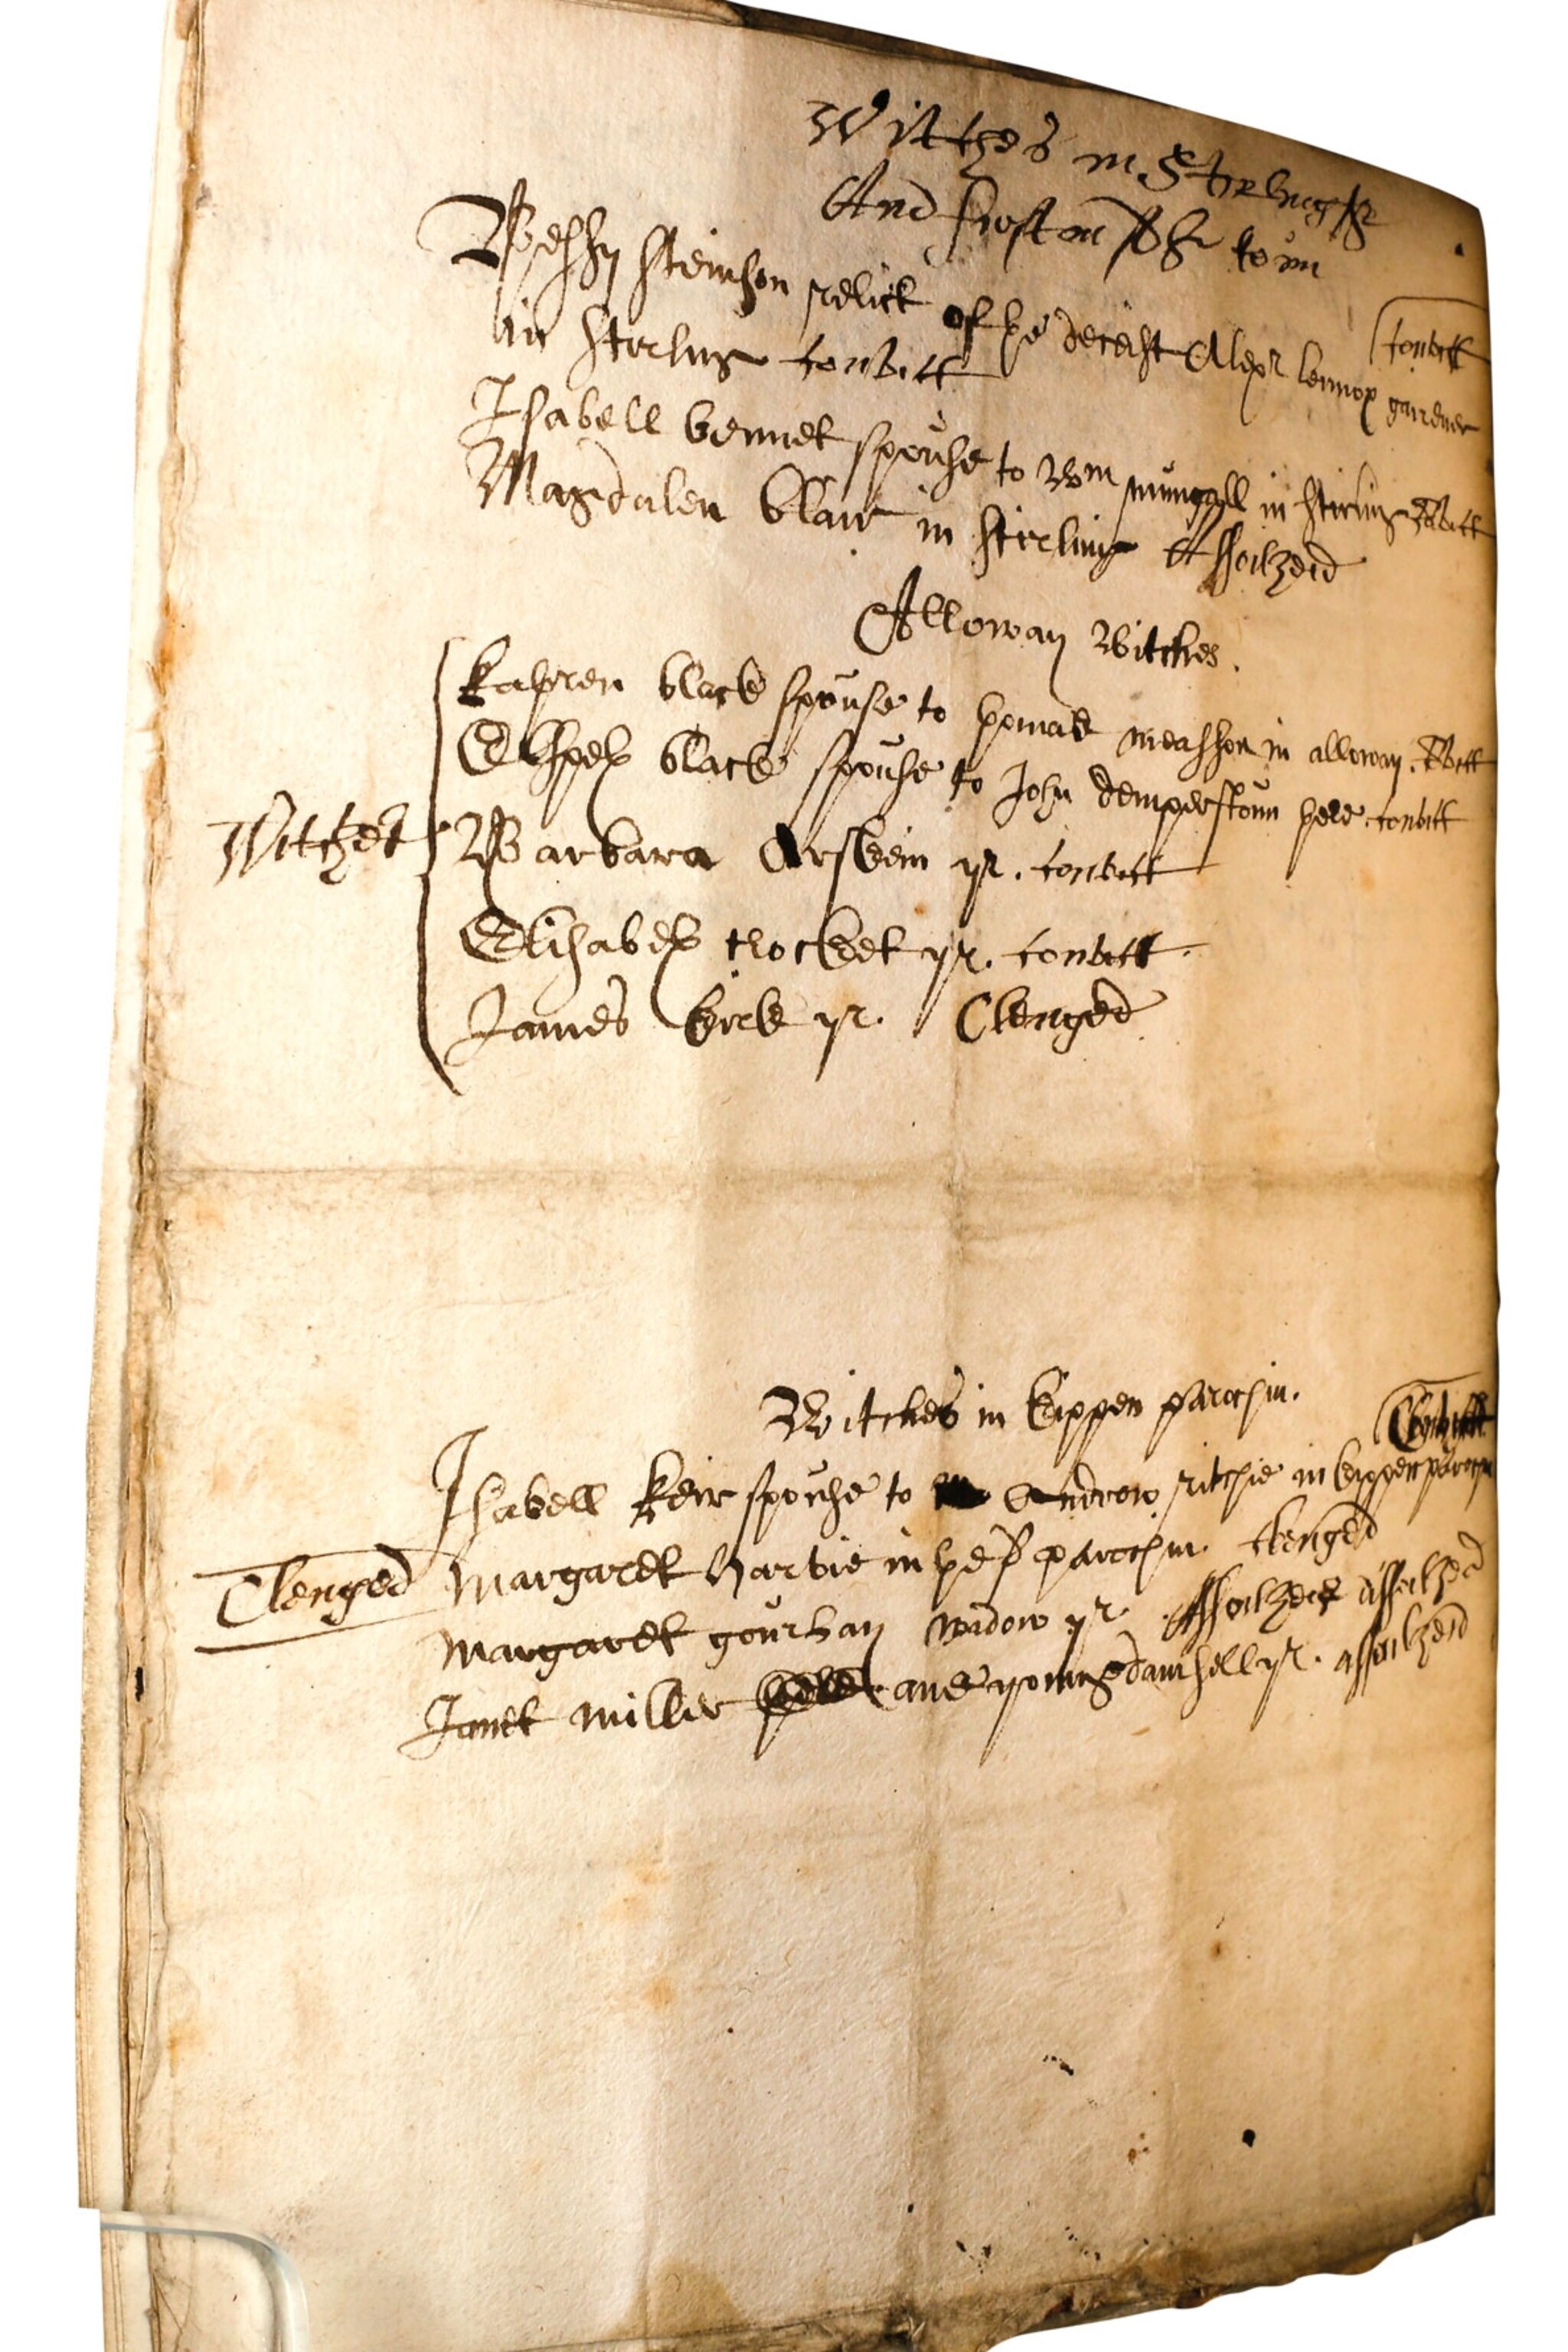 Witches in Stirlingshr
And first in the toun
Convict
Bessy Steinson relict of the deceist Alexr Lennox gairdner
in Stirling convict
Isabell bennet spouse to Wm mungall in Stirling
Magdalen blair in Stirling Assoilzeid
Alloway Witches.
Kathren black spouse to thomas measson in alloway.
Elspeth black spouse to John demperstoun there convict
Witches
Barbara Erskein yr. convict
Elisabeth crocket yr. convict.
James kirk yr. Clenged
Witches in kippen parochin.
Convict
Isabell keir spouse to Andrew ritchie in kippen parochin
Clenged
Margaret harvie in the sd parochin clenged
Margaret gourlay widow yr Assoilzeit assoilzed
Jonet miller ane young damsell yr. assoilzeid